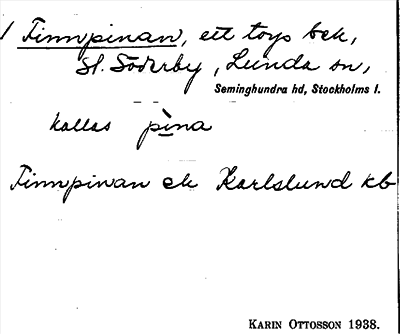 / Finnpinan, ett torp bek,
St. Söderby, Lunda sn,
Seminghundra hd, Stockholms l.
kallas pìna
Finnpinan ek Karlslund kb
KARIN OTTOSSON 1938.